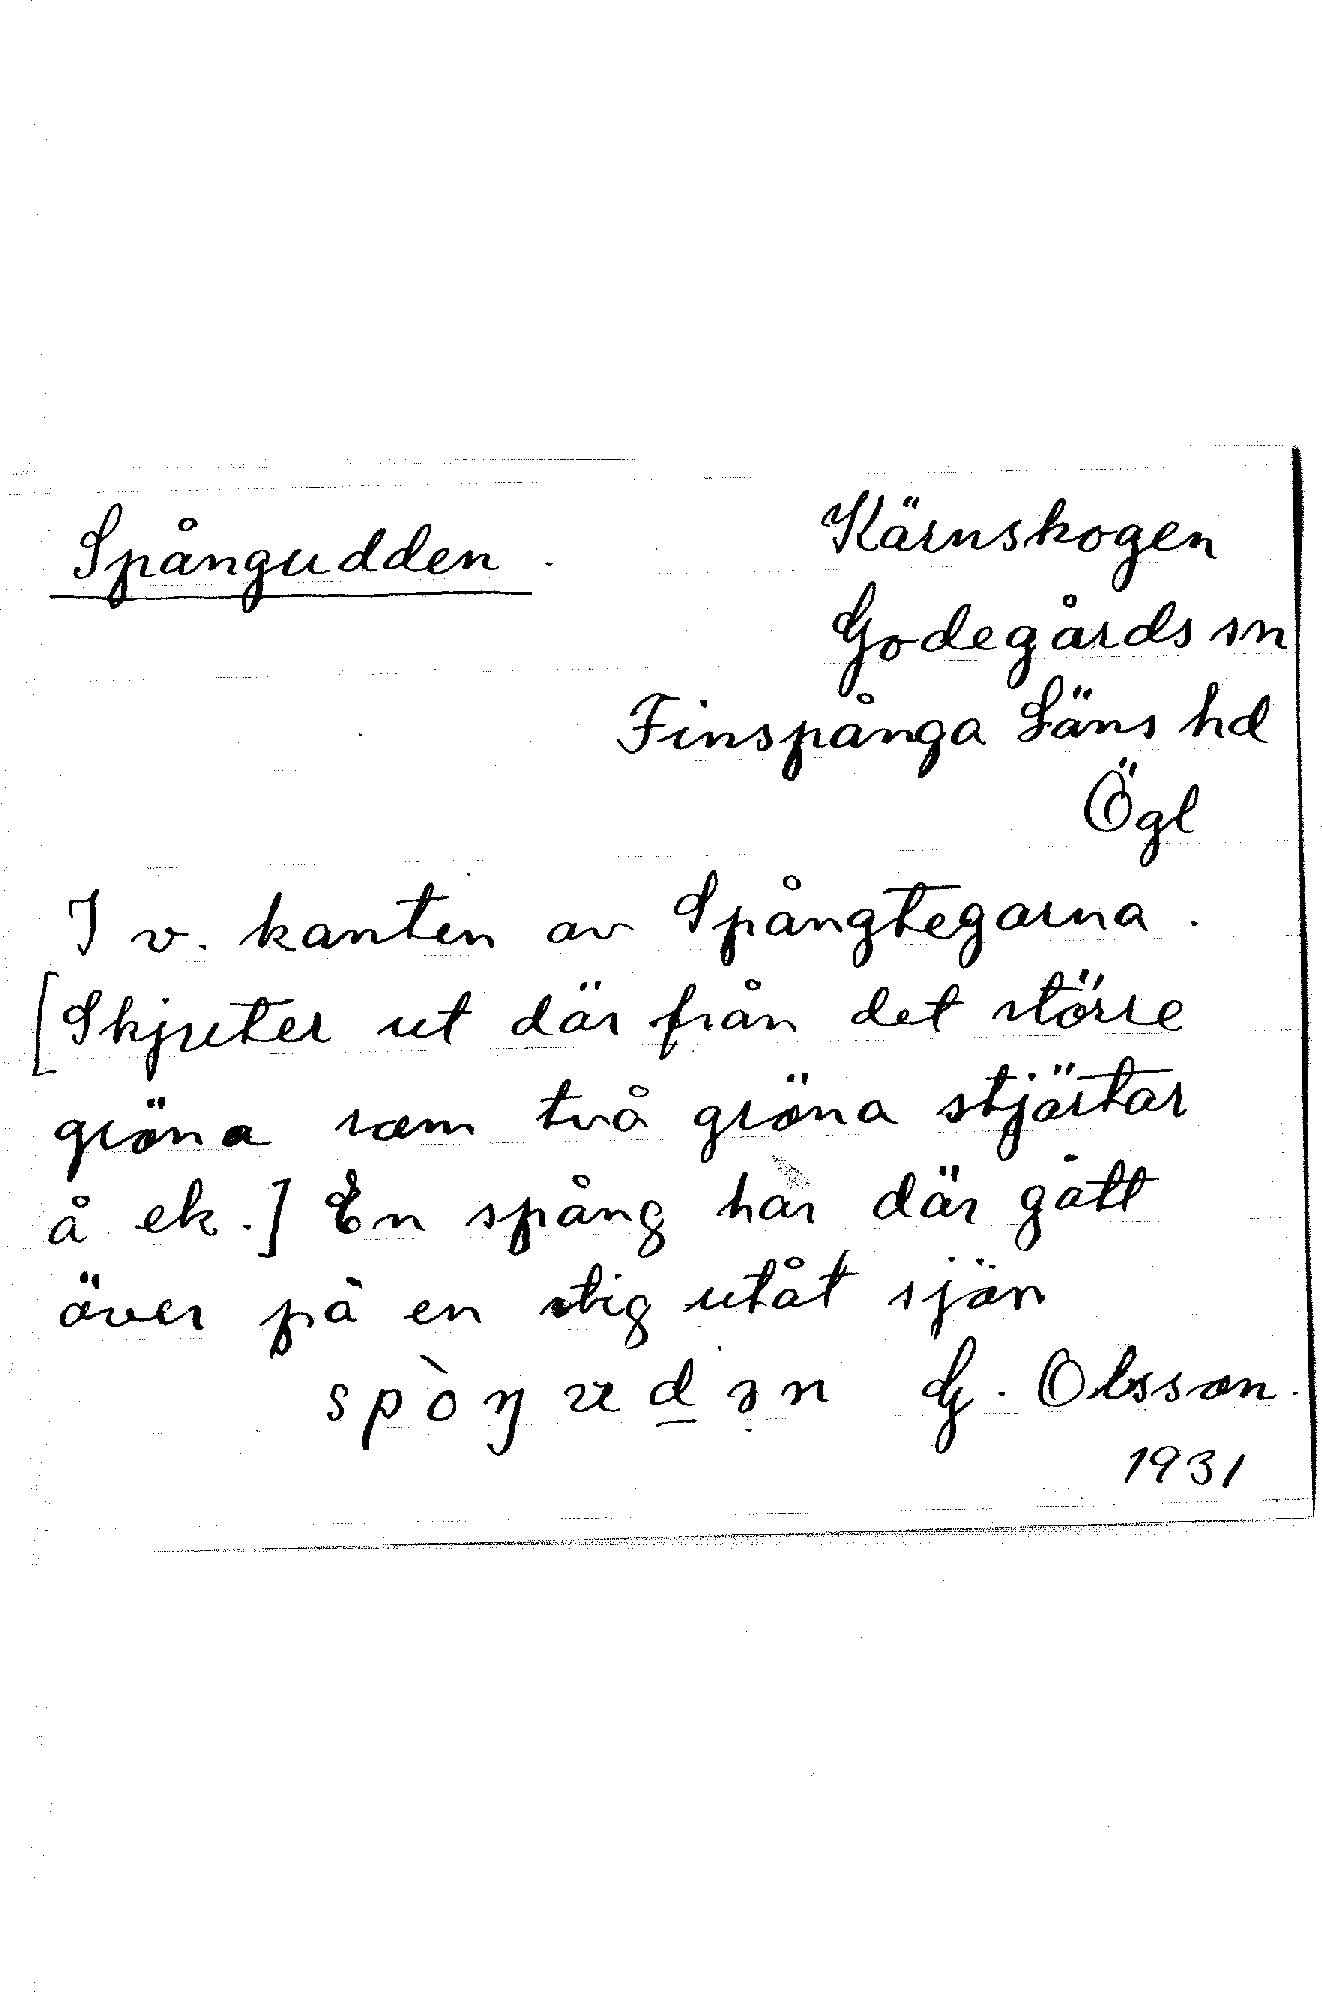 Spångudden.
Kärnskogen
Godegårds sn
Finspånga Läns hd
Ögl
I v. kanten av Spångtegarna.
[Skjuter ut där från det större
gröna som två gröna stjärtar
å ek.] En spång har där gått
över på en stig utåt sjön
spòŋud̲ən G. Olsson.
1931